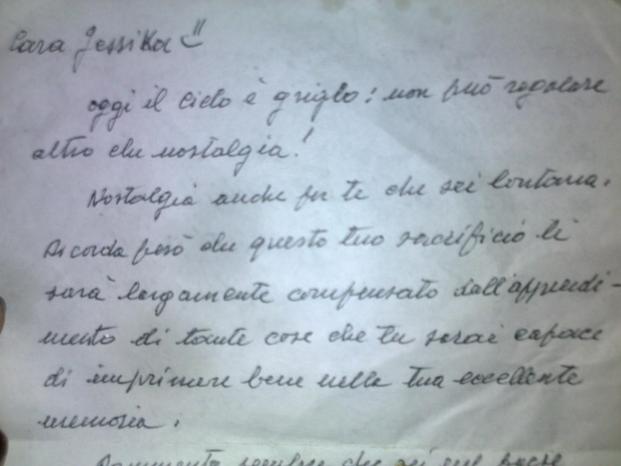 Cara Jessika
oggi il cielo è grigio: non può regalare
altro che nostalgia!
Nostalgia anche per te che sei lontana.
Ricorda però che questo tuo sacrificio ti
sarà largamente compensato dall'apprendi-
mento di tante cose che tu sarai capace
di imprimere bene nella tua eccellente
memoria.
Rammenta sempre che sei nel paese